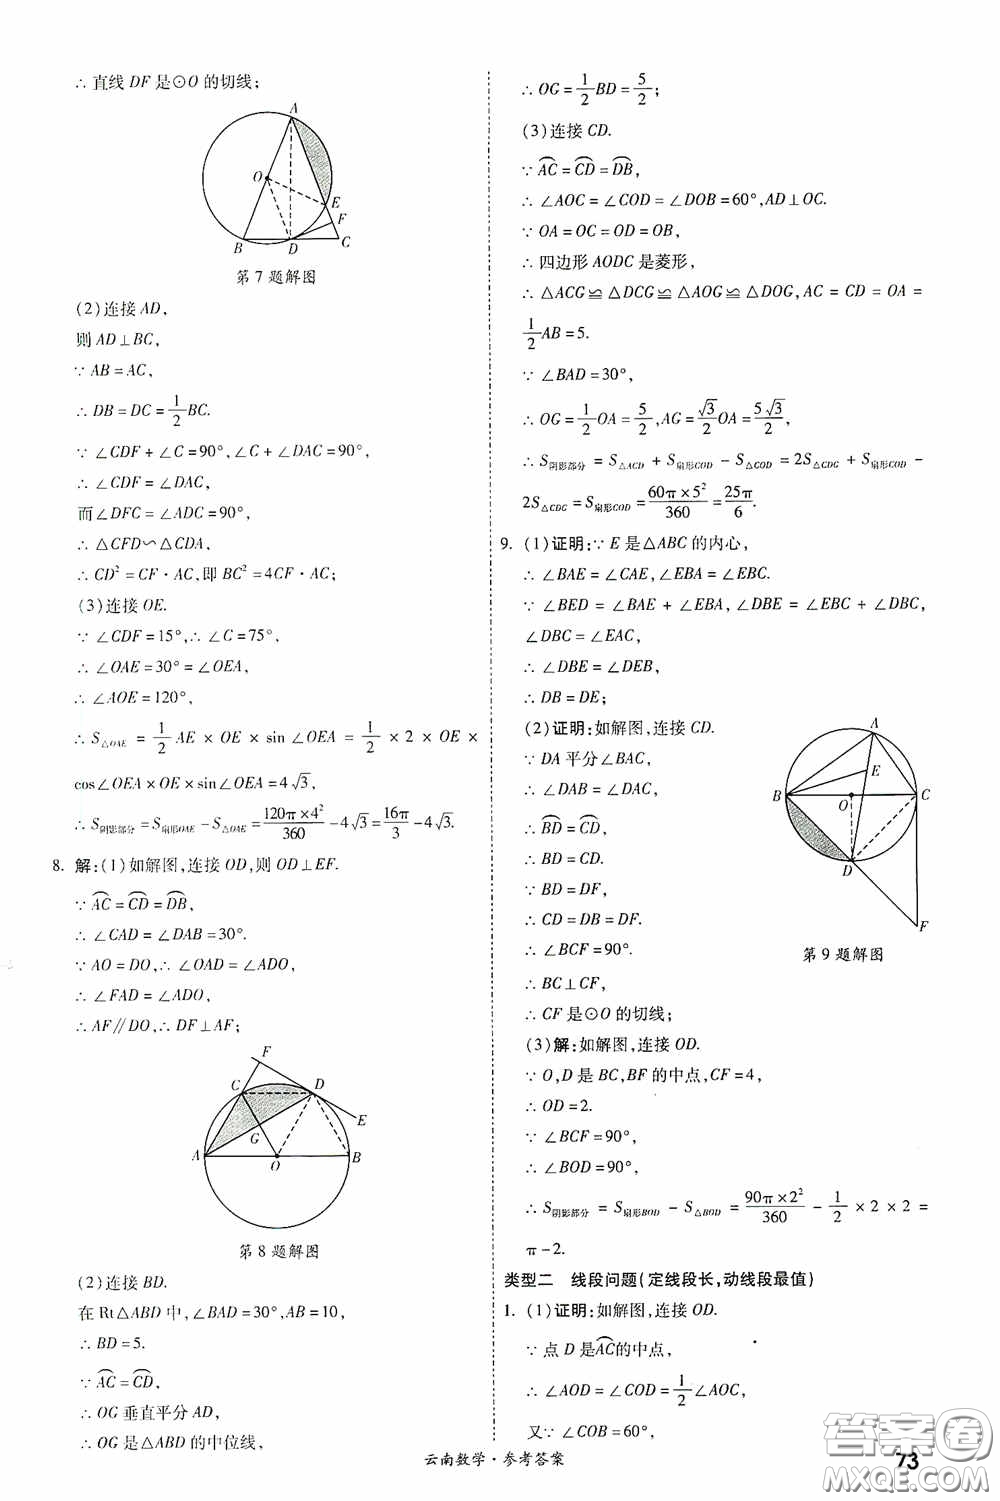 ∴ 直线 DF 是⊙O 的切线;
A
O
E
F
B
D
C
第 7 题解图
(2)连接 AD,
则 AD⊥BC,
∵ AB = AC,
∴ DB = DC = 1/2 BC.
∵ ∠CDF + ∠C = 90°, ∠C + ∠DAC = 90°,
∴ ∠CDF = ∠DAC,
而∠DFC = ∠ADC = 90°,
∴ △CFD∽△CDA,
∴ CD² = CF · AC,即 BC² = 4CF · AC;
(3)连接 OE.
∵ ∠CDF = 15°,∴ ∠C = 75°,
∴ ∠OAE = 30° = ∠OEA,
∴ ∠AOE = 120°,
∴ S△OAE = 1/2 AE × OE × sin ∠OEA = 1/2 × 2 × OE ×
cos∠OEA × OE × sin∠OEA = 4√3,
∴ S阴影部分 = S扇形OAE − S△OAE = 120π×4²/360 − 4√3 = 16π/3 − 4√3.
8. 解:(1)如解图,连接 OD,则 OD⊥EF.
∵ A͡C = C͡D = D͡B,
∴ ∠CAD = ∠DAB = 30°.
∵ AO = DO,∴ ∠OAD = ∠ADO,
∴ ∠FAD = ∠ADO,
∴ AF∥DO,∴ DF⊥AF;
F
C
D
E
G
A
O
B
第 8 题解图
(2)连接 BD.
在 Rt△ABD 中,∠BAD = 30°,AB = 10,
∴ BD = 5.
∵ A͡C = C͡D,
∴ OG 垂直平分 AD,
∴ OG 是△ABD 的中位线,
∴ OG = 1/2 BD = 5/2;
(3)连接 CD.
∵ A͡C = C͡D = D͡B,
∴ ∠AOC = ∠COD = ∠DOB = 60°,AD⊥OC.
∵ OA = OC = OD = OB,
∴ 四边形 AODC 是菱形,
∴ △ACG≌△DCG≌△AOG≌△DOG,AC = CD = OA =
1/2 AB = 5.
∵ ∠BAD = 30°,
∴ OG = 1/2 OA = 5/2,AG = √3/2 OA = 5√3/2,
∴ S阴影部分 = S△ACD + S扇形COD − S△COD = 2S△CDG + S扇形COD −
2S△CDG = S扇形COD = 60π×5²/360 = 25π/6.
9. (1)证明:∵ E 是△ABC 的内心,
∴ ∠BAE = ∠CAE,∠EBA = ∠EBC.
∵ ∠BED = ∠BAE + ∠EBA,∠DBE = ∠EBC + ∠DBC,
∠DBC = ∠EAC,
∴ ∠DBE = ∠DEB,
∴ DB = DE;
(2)证明:如解图,连接 CD.
∵ DA 平分∠BAC,
∴ ∠DAB = ∠DAC,
∴ B͡D = C͡D,
∴ BD = CD.
∵ BD = DF,
∴ CD = DB = DF.
∴ ∠BCF = 90°.
∴ BC⊥CF,
∴ CF 是⊙O 的切线;
A
E
B
O
C
D
F
第 9 题解图
(3)解:如解图,连接 OD.
∵ O,D 是 BC,BF 的中点,CF = 4,
∴ OD = 2.
∵ ∠BCF = 90°,
∴ ∠BOD = 90°,
∴ S阴影部分 = S扇形BOD − S△BOD = 90π×2²/360 − 1/2 × 2 × 2 =
π − 2.
类型二 线段问题(定线段长,动线段最值)
1. (1)证明:如解图,连接 OD.
∵ 点 D 是A͡C的中点,
∴ ∠AOD = ∠COD = 1/2 ∠AOC,
又∵ ∠COB = 60°,
云南数学 · 参考答案
73
答案圈
MXQE.COM